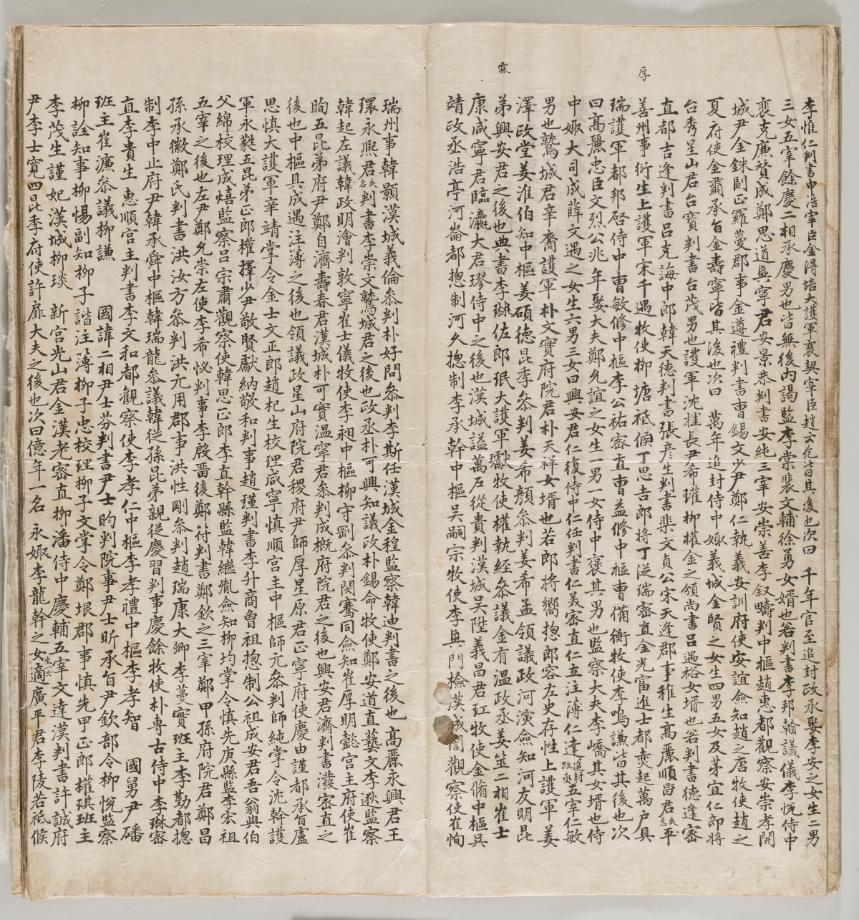 厚
李惟仁判書申浩宰臣金得培大護軍裵契宰臣趙云仡皆其後也次曰 千年官至追封政丞娶李安之女生二男
三女五宰餘慶二相承慶男也皆無後內謁監李棠裴文輔徐勇女婿也若判書李邦翰議儀李悅侍中
裵克廉贊成鄭思道興寧君安景恭判書安純三宰安崇善李叙疇判中樞趙惠都觀察安崇孝開
城尹金銖副正羅蔓郡事金遵禮判書曹錫文少尹鄭仁執義安訓府使安誼僉知趙之唐牧使趙之
夏府使金肅承旨金壽寧皆其後也次曰 萬年追封侍中娵義城金晅之女生四男五女及第宜仁郎將
台秀星山君台寶判書台茂男也護軍沈挂長尹希璀柳權金之領尚書呂遇裕女婿也若判書德逢密
直都吉逢判書呂克誨中郎韓天德判書張彦生判書裴文貞公宋天逢郡事稚生高麗順昌君平
善州事衍生上護軍宋千遇牧使柳塘祗候丁思吉郎將丁泛瑞密直金光富進士都賁起萬戶具
瑞護軍都邦啓侍中曹敏修中樞李公祐密直曹益修中樞曹備衡牧使李鳴謙皆其後也次
曰高麗忠臣文烈公兆年娶大夫鄭允誼之女生一男一女侍中褒其男也監察大夫李嶠其女婿也侍
中娵大司成薛文遇之女生六男三女曰興安君仁復侍中仁任判書仁美密直仁立注薄仁逵追封政丞五宰仁敏
男也鷲城君辛裔護軍朴文寶府院君朴天祥女婿也若郎將嚮摠郎容左史存性上護軍姜
澤政堂姜淮伯知中樞姜碩德昆季參判姜希顏參判姜希孟領議政河演僉知河友明昆
弟興安君之後也典書李琳佐郎珉大護軍獻牧使權執經參議金有溫政丞姜筮二相崔士
康咸寧君臨瀛大君璆侍中之後也漢城謚萬戶從貴判漢城吳陞義昌君玒牧使金脩中樞兵
靖政丞浩亭河崙都摠制河久摠制李承幹中樞吳嗣宗牧使李興門檢漢成閭觀察使崔恂
霖
瑞州事韓顯漢城義倫參判朴好問參判李斯任漢城金程監察韓迪判書之後也高麗永興君王
環永熙君判書李崇文鷲城君之後也政丞朴可興知議政朴錫命牧使鄭安道直藝文李遜監察
韓起左議韓政明澮判敦寧崔士儀牧使李昶中樞柳守剛參判閔騫同僉知崔厚明懿宮王府使崔
昫五昆弟府尹鄭自濟壽春君漢城朴可實溫寧君參判成槪府院君之後也興安君濟判書潑密直之
後也中樞具成遇注薄之後也領議政星山府院君稷府尹師厚星原君正寧府使慶由謹都承旨廬
思慎大護軍辛靖掌令金士文正郎趙杞生校理咸寧慎順宮主中樞師元參判師純掌令沈幹護
軍永蕤五昆弟正郎權擇少尹敢賢獻納敬和判事趙瑾判書李升商魯祖摠制公祖成安君吾翁與伯
父綿校理成熺監察呂宗肅觀察使韓思正郎李直幹縣監韓繼胤僉知柳均掌令慎先庚縣監李宏祖
五宰之後也左尹鄭允崇左使李希怭判事李殷晋後鄭符判書鄭欽之三宰鄭甲孫府院君鄭昌
孫承徽鄭氏判書洪汝方參判洪元用郡事洪性剛參判趙瑞康大卿李蔓實班主李勤都摠
制李中止府尹韓承舜中樞韓瑞龍參議韓從孫昆弟親從慶習判事慶餘牧使朴專古侍中李琳密
直李貴生 惠順宮主判書李文和都觀察使李孝仁中樞李孝禮中樞李孝智 國舅尹磻
班主崔濂參議柳謙 國諱二相尹士芬判書尹士昀判院事尹士昕承旨尹欽部令柳悅監察
柳詮知事柳惕副知柳子諧注薄柳子忠校理柳子文掌令鄭垠郡事慎先甲正郎權琪班主
李茂生謹妃漢城柳琰 新宮光山君金漢老密直柳潘侍中慶輔五宰文達漢判書許誠府
尹李士寬四昆季府使許扉大夫之後也次曰億年一名 永娵李龍幹之女適廣平君李陵若祗候